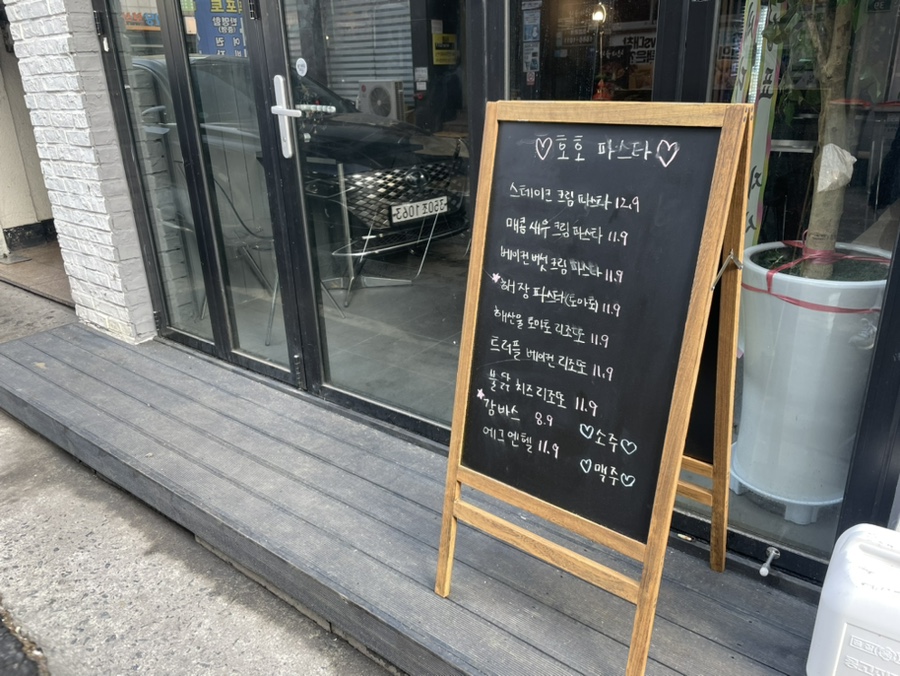 ♡호호 파스타♡
스테이크 크림 파스타 12.9
매콤 새우 크림 파스타 11.9
베이컨 버섯 크림 파스타 11.9
해장 파스타(토마토) 11.9
해산물 토마토 리조또 11.9
트러플 베이컨 리조또 11.9
불닭 치즈 리조또 11.9
감바스 8.9
에그엔텔 11.9
♡소주♡
♡맥주♡